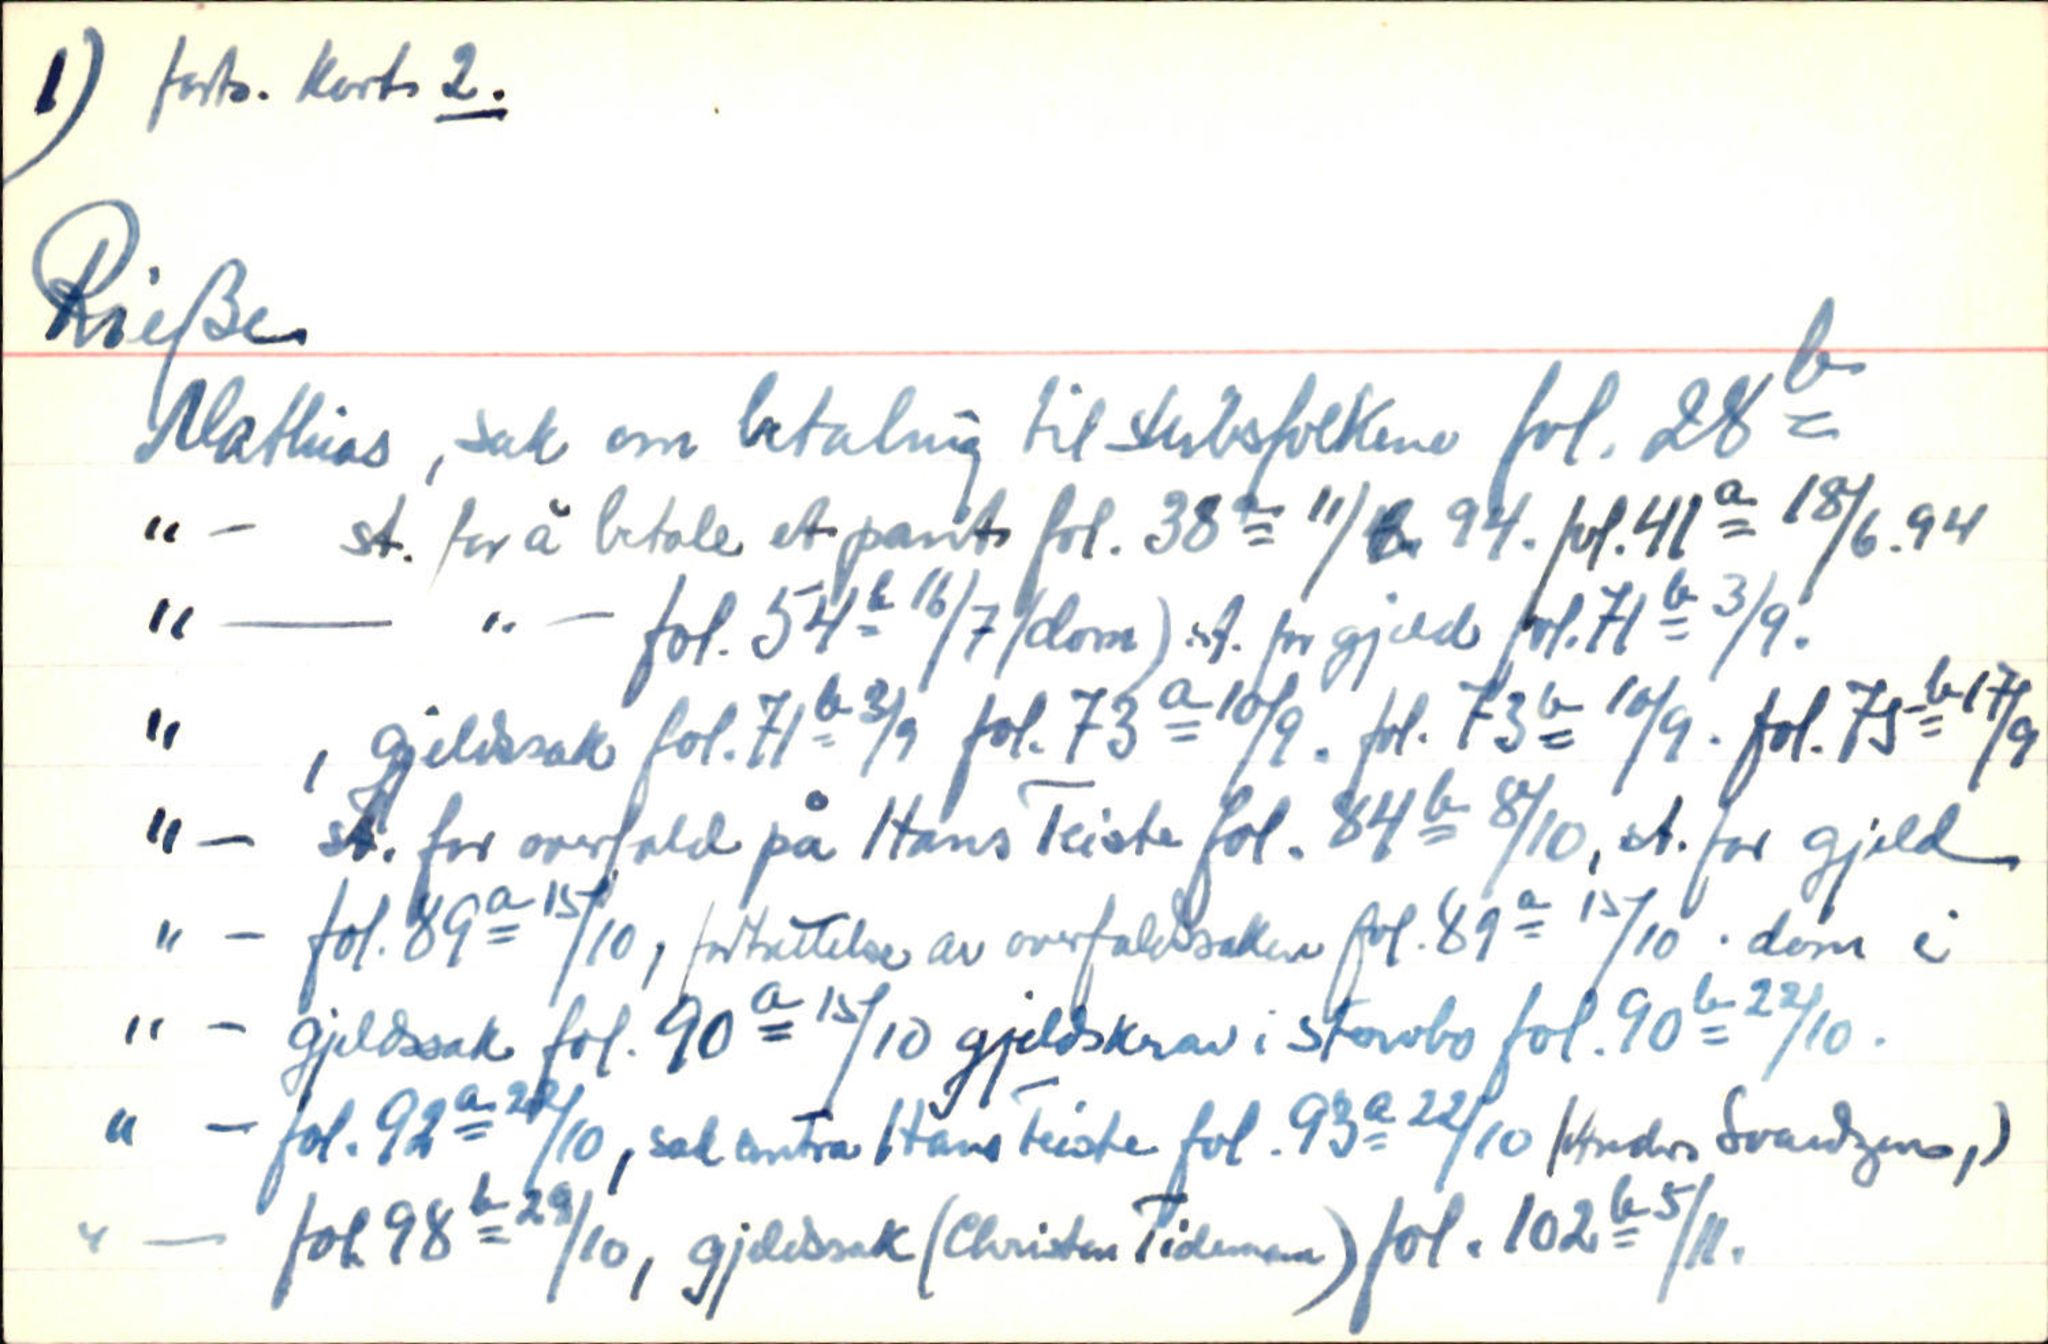 1) forts. kort 2.
Rieße
Mathias, sak om betaling til skibsfolkene fol. 28 b
" - st. for å betale et pant fol. 38 a 11/6. 94. fol. 41 a 18/6. 94
" — " - fol. 54 b 16/7 (dom) st. for gjeld fol. 71 b 3/9.
" , gjeldssak fol. 71 b 3/9 fol. 73 a 10/9. fol. 73 b 10/9. fol. 75 b 17/9
" - st. for overfald på Hans Teiste fol. 84 b 8/10, st. for gjeld
" - fol. 89 a 15/10, fortsettelse av overfaldssaken fol. 89 a 15/10. dom i
" - gjeldssak fol. 90 a 15/10 gjeldskrav i fol. 90 b 22/10.
" - fol. 92 a 22/10, sak contra Hans Teiste fol. 93 a 22/10 (Anders
" — fol. 98 b 29/10, gjeldssak (Christen Tidemann) fol. 102 b 5/11.